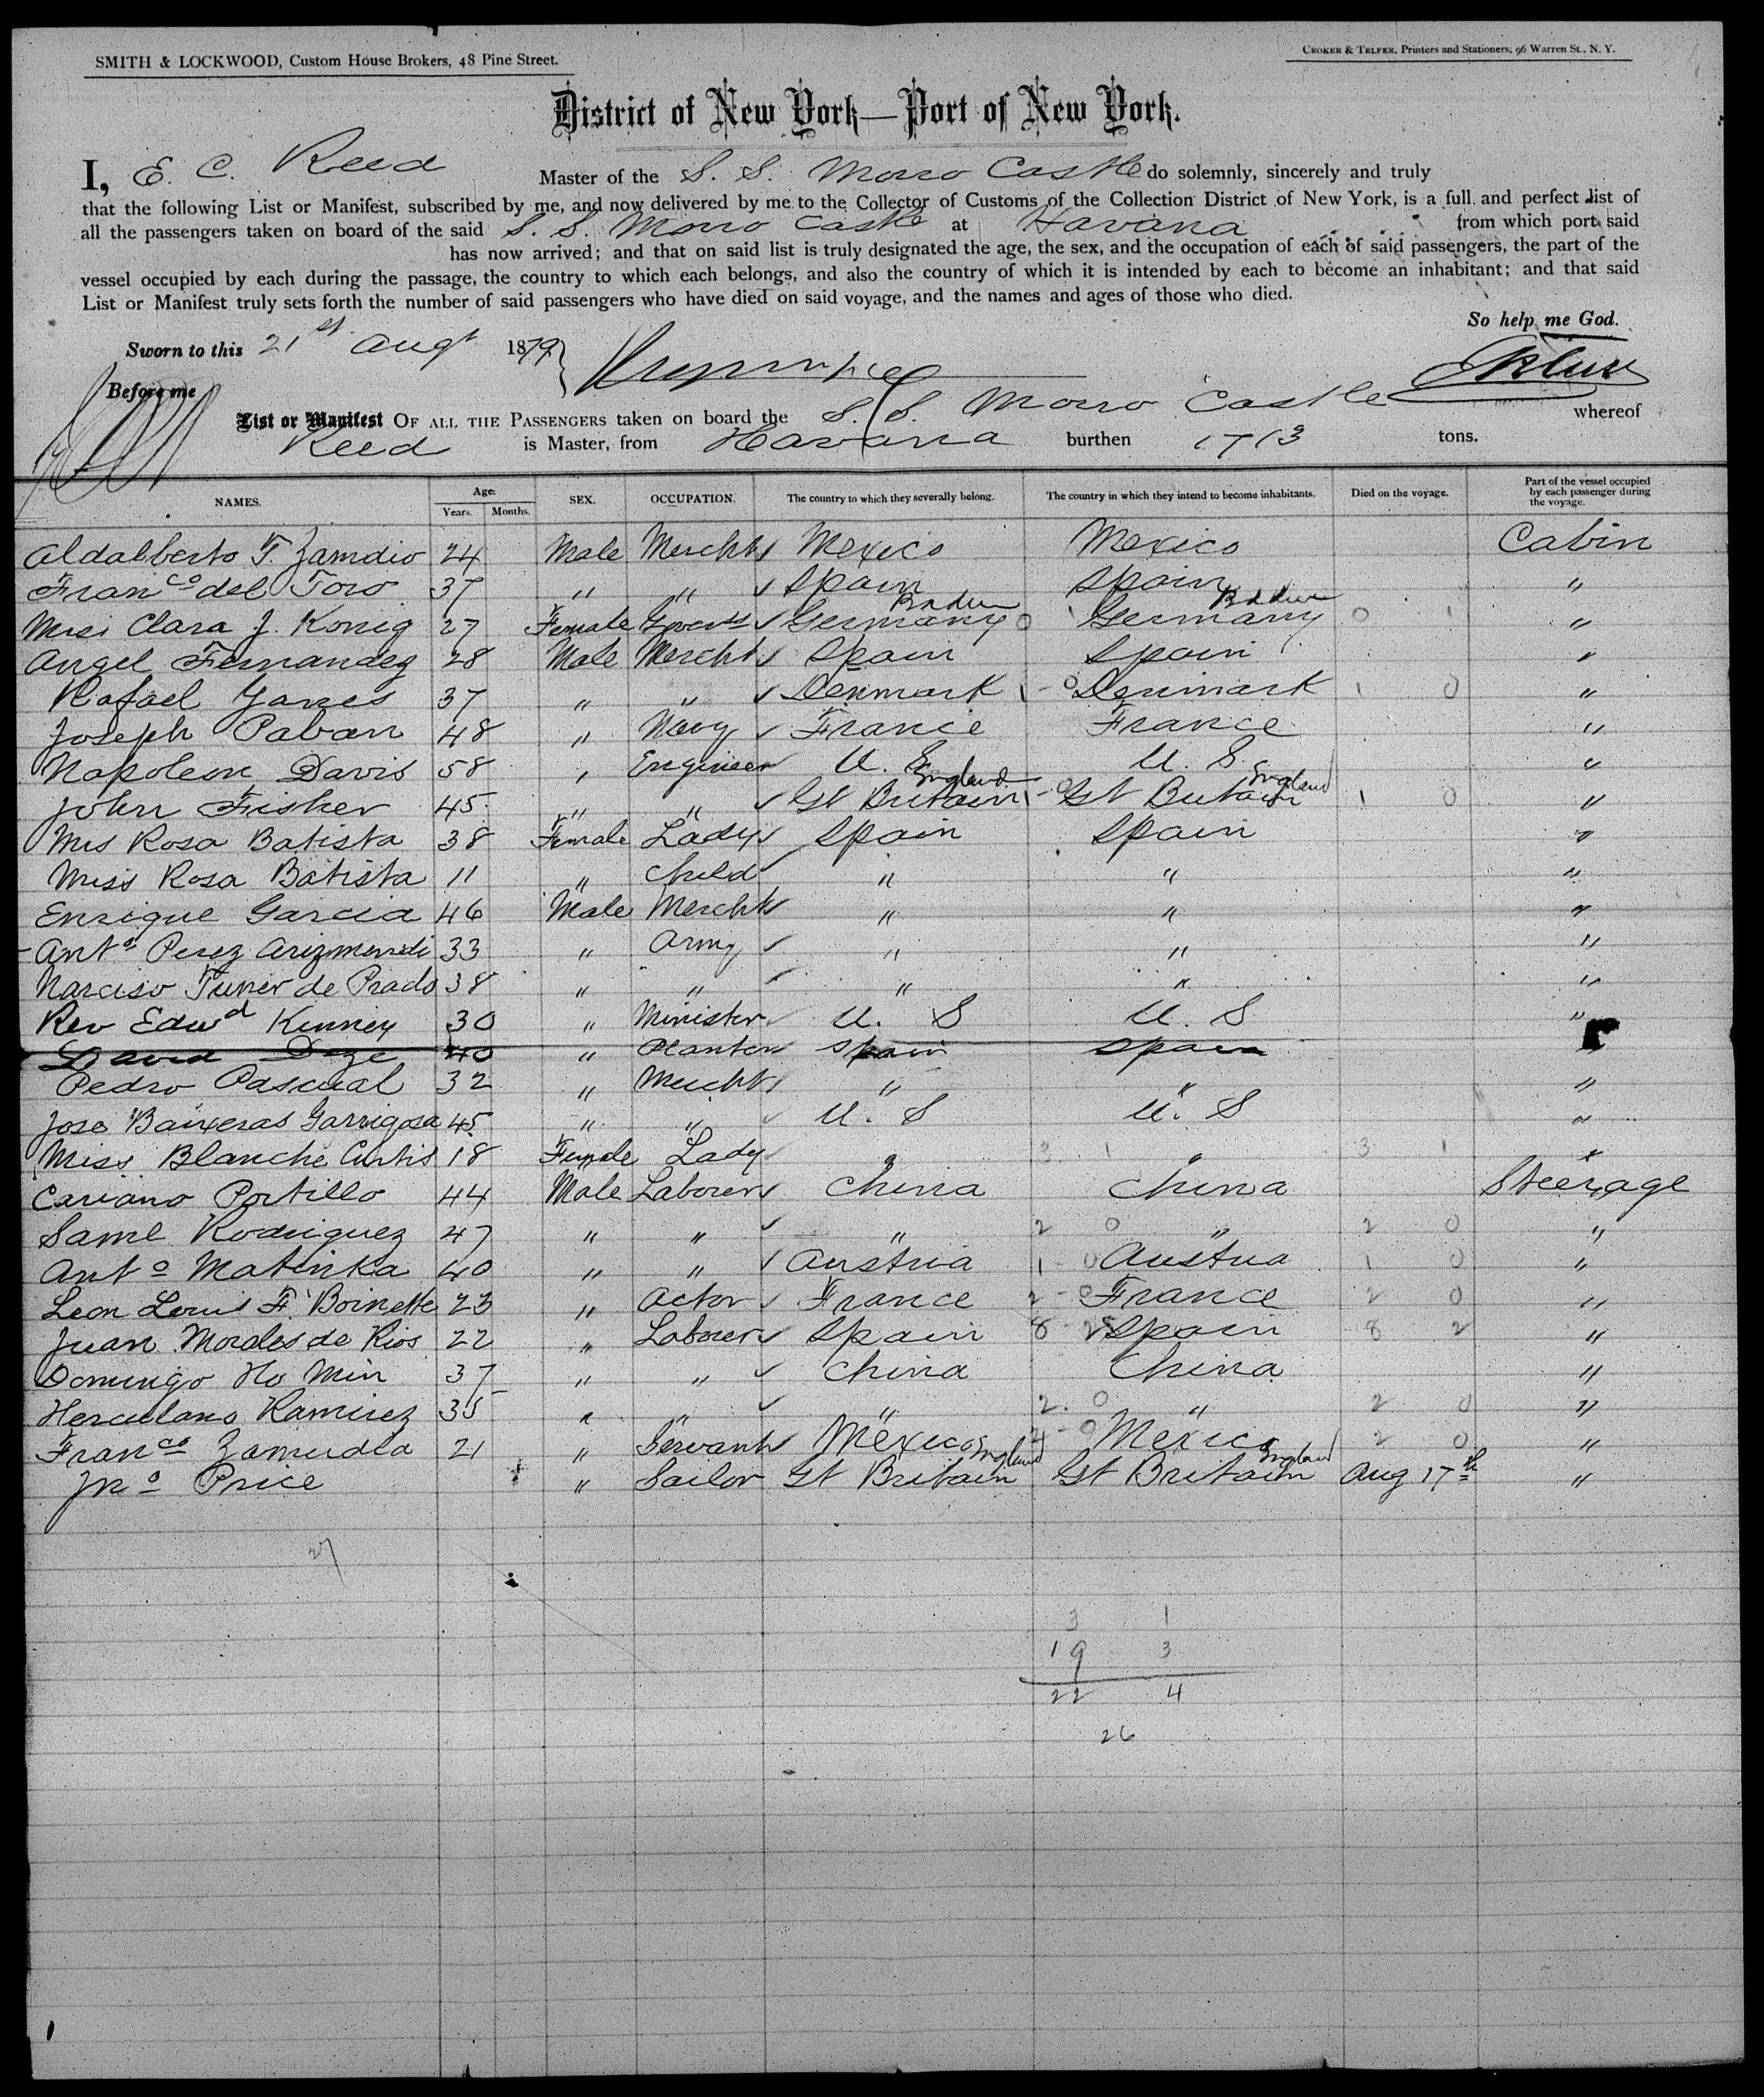 SMITH & LOCKWOOD, Custom House Brokers, 48 Pine Street.
CROKER & TELFER, Printers and Stationers, 96 Warren St., N. Y.
District of New York—Port of New York.
I, E. C. Reed Master of the S. S. Morro Castle do solemnly, sincerely and truly
that the following List or Manifest, subscribed by me, and now delivered by me to the Collector of Customs of the Collection District of New York, is a full and perfect list of
all the passengers taken on board of the said S. S. Morro Castle at Havana from which port said
has now arrived; and that on said list is truly designated the age, the sex, and the occupation of each of said passengers, the part of the
vessel occupied by each during the passage, the country to which each belongs, and also the country of which it is intended by each to become an inhabitant; and that said
List or Manifest truly sets forth the number of said passengers who have died on said voyage, and the names and ages of those who died.
So help me God.
Sworn to this 21st Augt 1879
Before me
List or Manifest OF ALL THE PASSENGERS taken on board the S. S. Morro Castle whereof
Reed is Master, from Havana burthen 1713 tons.
NAMES. Age. Years. Months. SEX. OCCUPATION. The country to which they severally belong. The country in which they intend to become inhabitants. Died on the voyage. Part of the vessel occupied by each passenger during the voyage.
Aldalberto F. Zamdio 24 Male Mercht Mexico Mexico Cabin
Franco del Toro 37 " " Spain Spain "
Miss Clara J. Konig 27 Female Govess Germany Baden 0 1 Germany Baden 0 1 "
Angel Fernandez 28 Male Mercht Spain Spain "
Rafael Yanes 37 " " Denmark 1-0 Denmark 1 0 "
Joseph Paban 48 " Navy France France "
Napoleon Davis 58 " Engineer U. S. U. S. "
John Fisher 45 " " Gt Britain England 1-0 Gt Britain England 1 0 "
Mrs Rosa Batista 38 Female Lady Spain Spain "
Miss Rosa Batista 11 " Child " " "
Enrique Garcia 46 Male Mercht " " "
Anto Perez Arizmendi 33 " Army " " "
Narciso Tuner de Prado 38 " " " " "
Rev Edwd Kinney 30 " Minister U. S U. S "
David Doze 40 " Planter Spain Spain
Pedro Pascual 32 " Mercht " " "
Jose Baixeras Garrigosa 45 " " U. S U. S "
Miss Blanche Curtis 18 Female Lady " 3 1 " 3 1 "
Cariano Portillo 44 Male Laborer China China Steerage
Saml Rodriguez 47 " " " 2 0 " 2 0 "
Anto Matinka 40 " " Austria 1 0 Austria 1 0 "
Leon Louis F. Boinette 23 " Actor France 2-0 France 2 0 "
Juan Morales de Rios 22 " Laborer Spain 8-2 Spain 8 2 "
Domingo Ho Min 37 " " China China "
Herculano Ramirez 35 " " " 2. 0 " 2 0 "
Franco Zamudia 21 " Servant Mexico 2-0 Mexico 2 0 "
Jno Price " Sailor Gt Britain England Gt Britain England Aug 17th "
27
3 1
19 3
22 4
26